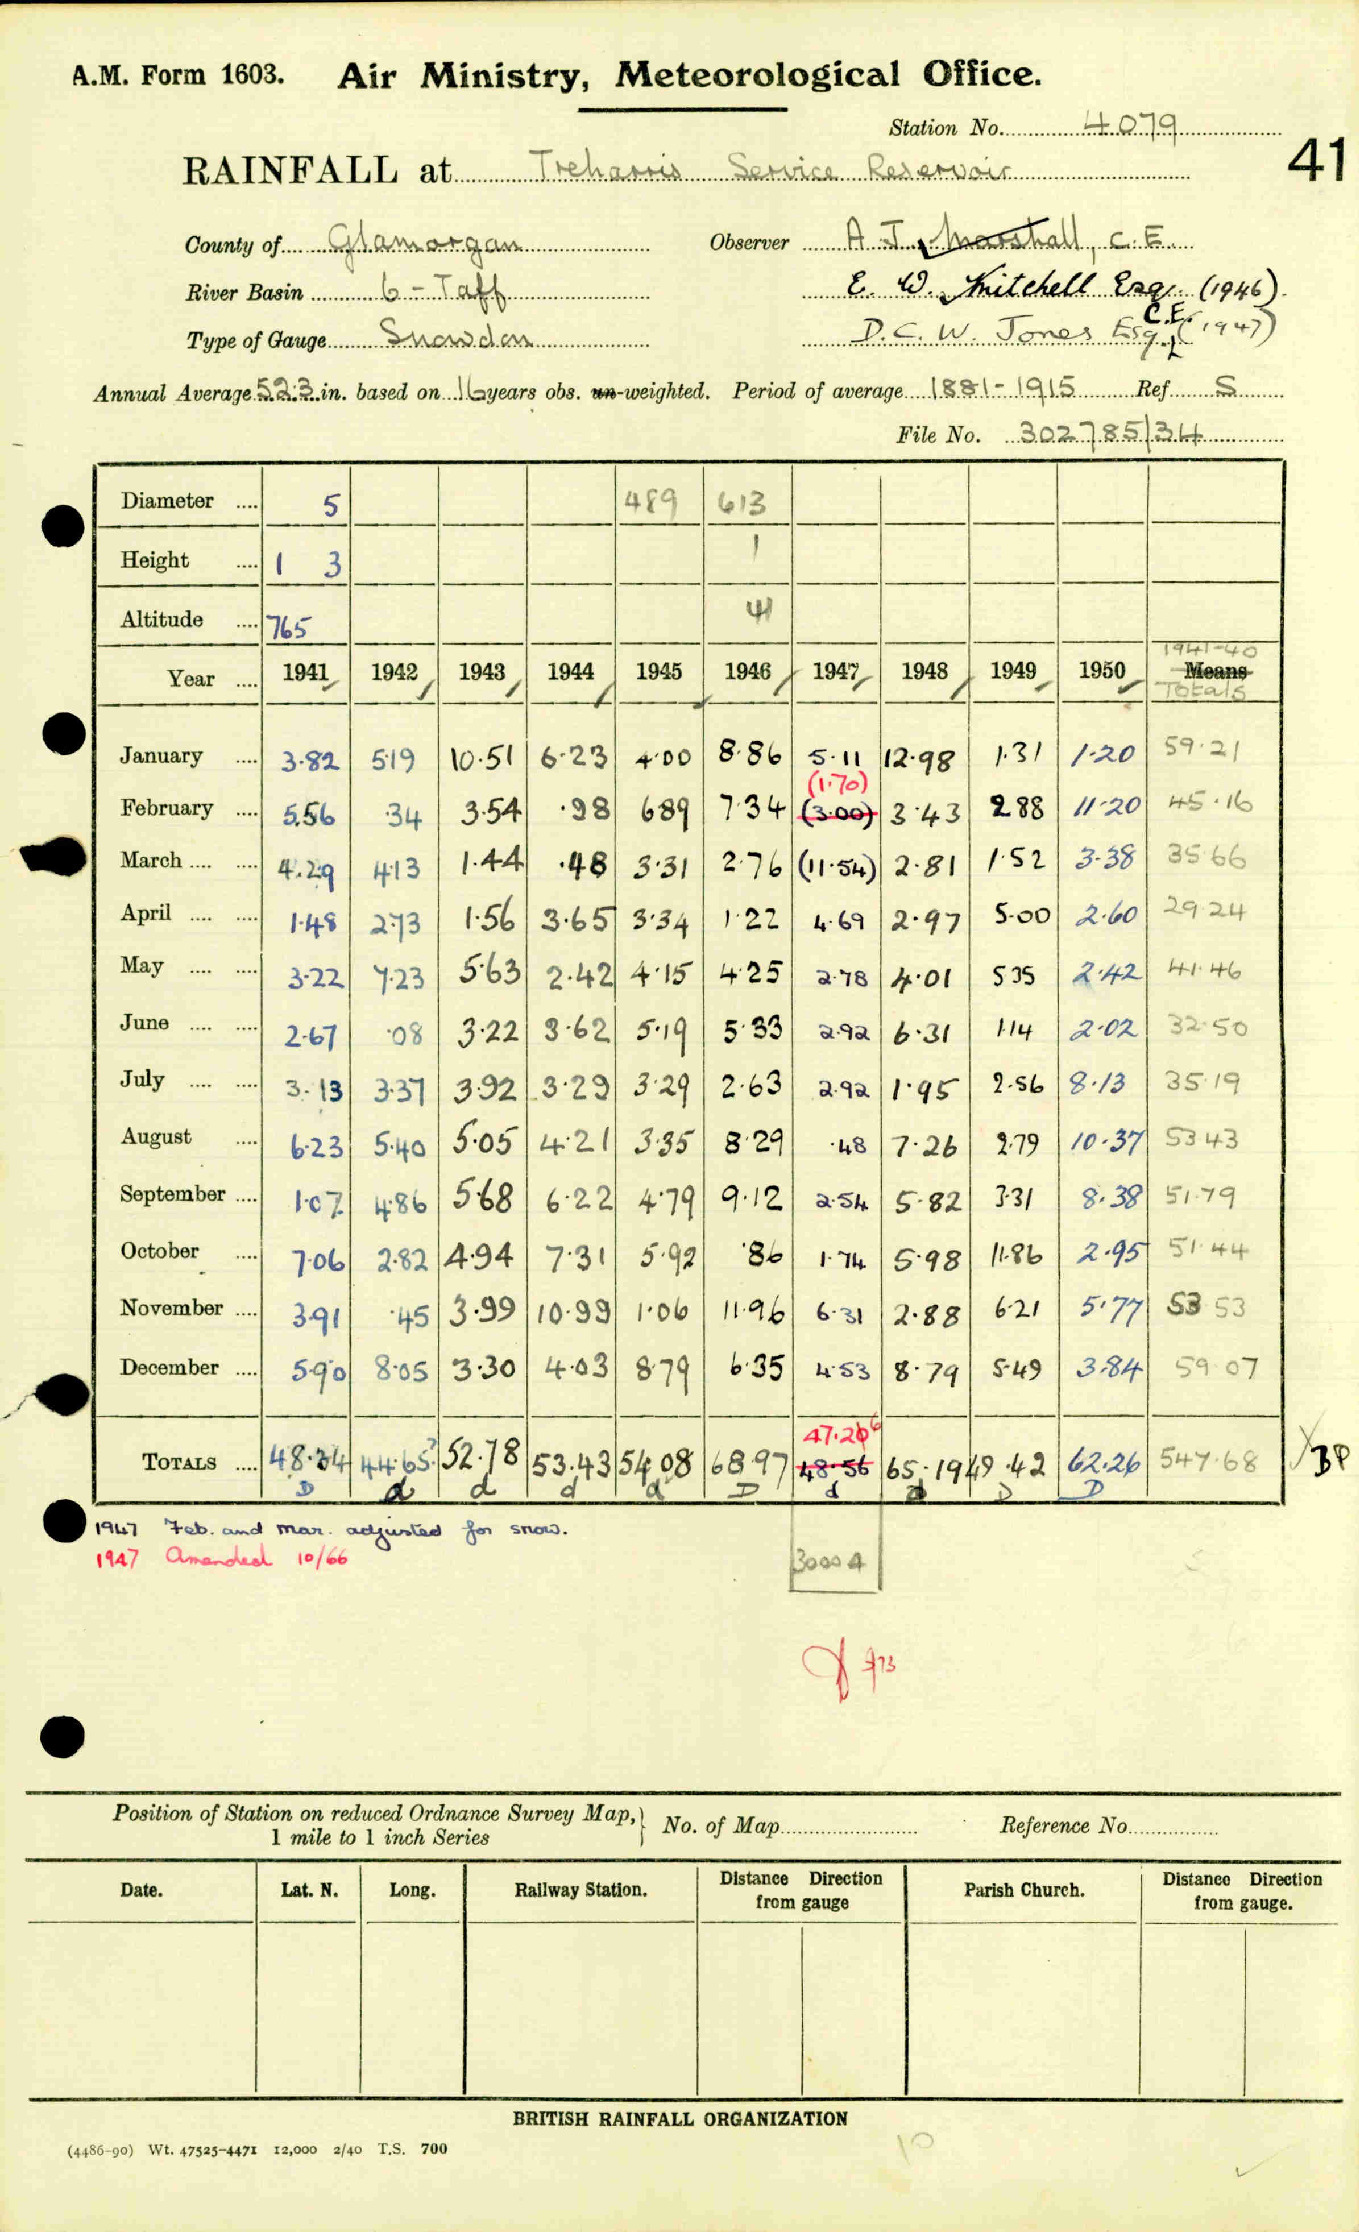 A.M. Form 1603. Air Ministry, Meteorological Office.
Station No. 4079
41
RAINFALL at Treharris Service Reservoir
County of Glamorgan Observer A. J. Marshall, C.E.
River Basin 6 - Taff E. W. Mitchell Esq. (1946)
Type of Gauge Snowdon D. C. W. Jones Esq. C.E. (1947)
Annual Average 52.3 in. based on 16 years obs. un-weighted. Period of average 1881-1915 Ref S
File No. 302785/34
Diameter .... 5 489 613
Height .... 1 3 1
Altitude .... 765 41
1941-40
Year .... 1941 1942 1943 1944 1945 1946 1947 1948 1949 1950 Means
Totals
January .... 3.82 5.19 10.51 6.23 4.00 8.86 5.11 12.98 1.31 1.20 59.21
(1.70)
February .... 5.56 .34 3.54 .98 6.89 7.34 (3.00) 3.43 2.88 11.20 45.16
March .... .... 4.29 4.13 1.44 .48 3.31 2.76 (11.54) 2.81 1.52 3.38 35.66
April .... .... 1.48 2.73 1.56 3.65 3.34 1.22 4.69 2.97 5.00 2.60 29.24
May .... .... 3.22 7.23 5.63 2.42 4.15 4.25 2.78 4.01 5.35 2.42 41.46
June .... .... 2.67 .08 3.22 3.62 5.19 5.33 2.92 6.31 1.14 2.02 32.50
July .... .... 3.13 3.37 3.92 3.29 3.29 2.63 2.92 1.95 2.56 8.13 35.19
August .... 6.23 5.40 5.05 4.21 3.35 8.29 .48 7.26 2.79 10.37 53.43
September .... 1.07 4.86 5.68 6.22 4.79 9.12 2.54 5.82 3.31 8.38 51.79
October .... 7.06 2.82 4.94 7.31 5.92 .86 1.74 5.98 11.86 2.95 51.44
November .... 3.91 .45 3.99 10.99 1.06 11.96 6.31 2.88 6.21 5.77 53.53
December .... 5.90 8.05 3.30 4.03 8.79 6.35 4.53 8.79 5.49 3.84 59.07
47.26
TOTALS .... 48.34 44.65 52.78 53.43 54.08 68.97 48.56 65.19 49.42 62.26 547.68 BP
D d d d d D d d D D
1947 Feb. and Mar. adjusted for snow.
1947 Amended 10/66
30004
Position of Station on reduced Ordnance Survey Map, No. of Map Reference No.
1 mile to 1 inch Series
Date. Lat. N. Long. Railway Station. Distance Direction from gauge Parish Church. Distance Direction from gauge.
BRITISH RAINFALL ORGANIZATION
(4486-90) Wt. 47525-4471 12,000 2/40 T.S. 700
10